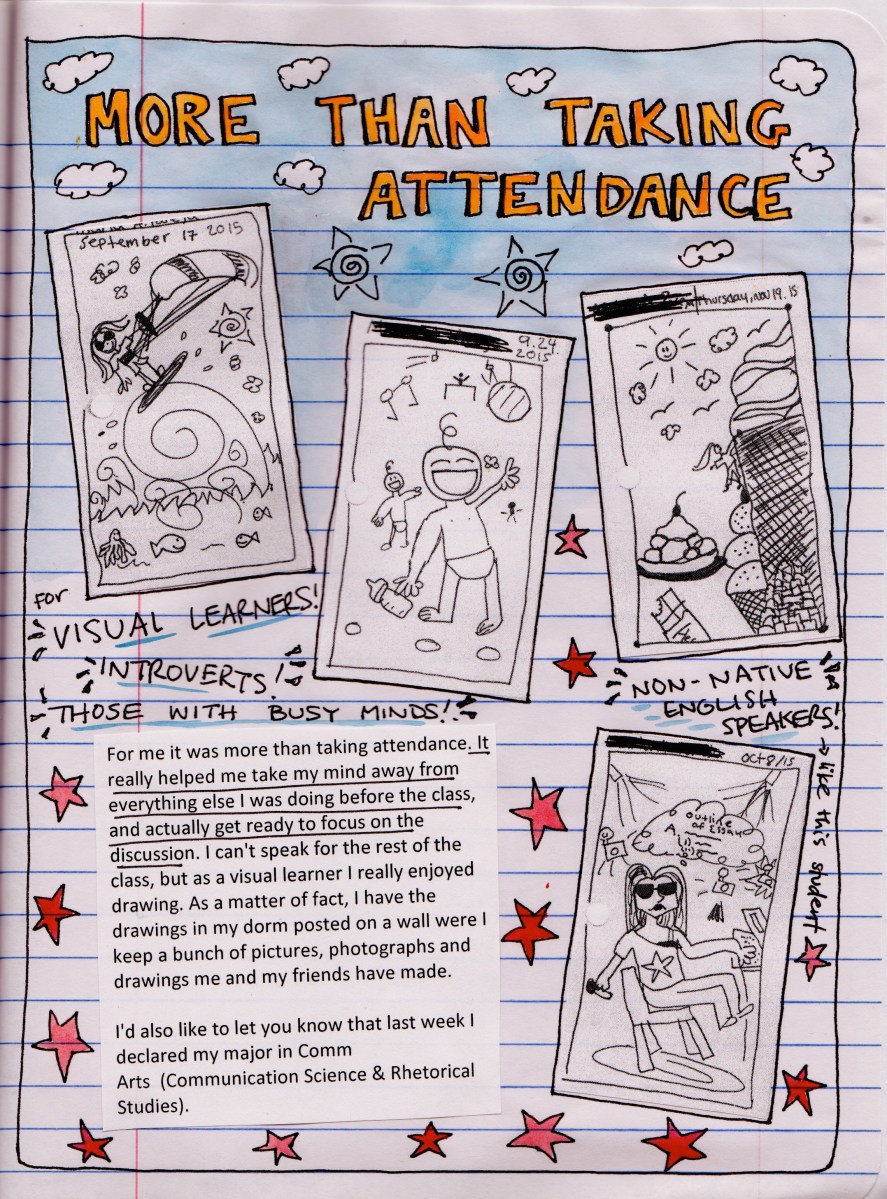 MORE THAN TAKING
ATTENDANCE
September 17 2015
9.24.
2015
Thursday, nov 19.15
for
VISUAL LEARNERS!
INTROVERTS!
THOSE WITH BUSY MINDS!!
NON-NATIVE
ENGLISH
SPEAKERS!
→ like this student
oct 8/15
outline
of Essay
For me it was more than taking attendance. It
really helped me take my mind away from
everything else I was doing before the class,
and actually get ready to focus on the
discussion. I can't speak for the rest of the
class, but as a visual learner I really enjoyed
drawing. As a matter of fact, I have the
drawings in my dorm posted on a wall were I
keep a bunch of pictures, photographs and
drawings me and my friends have made.
I'd also like to let you know that last week I
declared my major in Comm
Arts (Communication Science & Rhetorical
Studies).